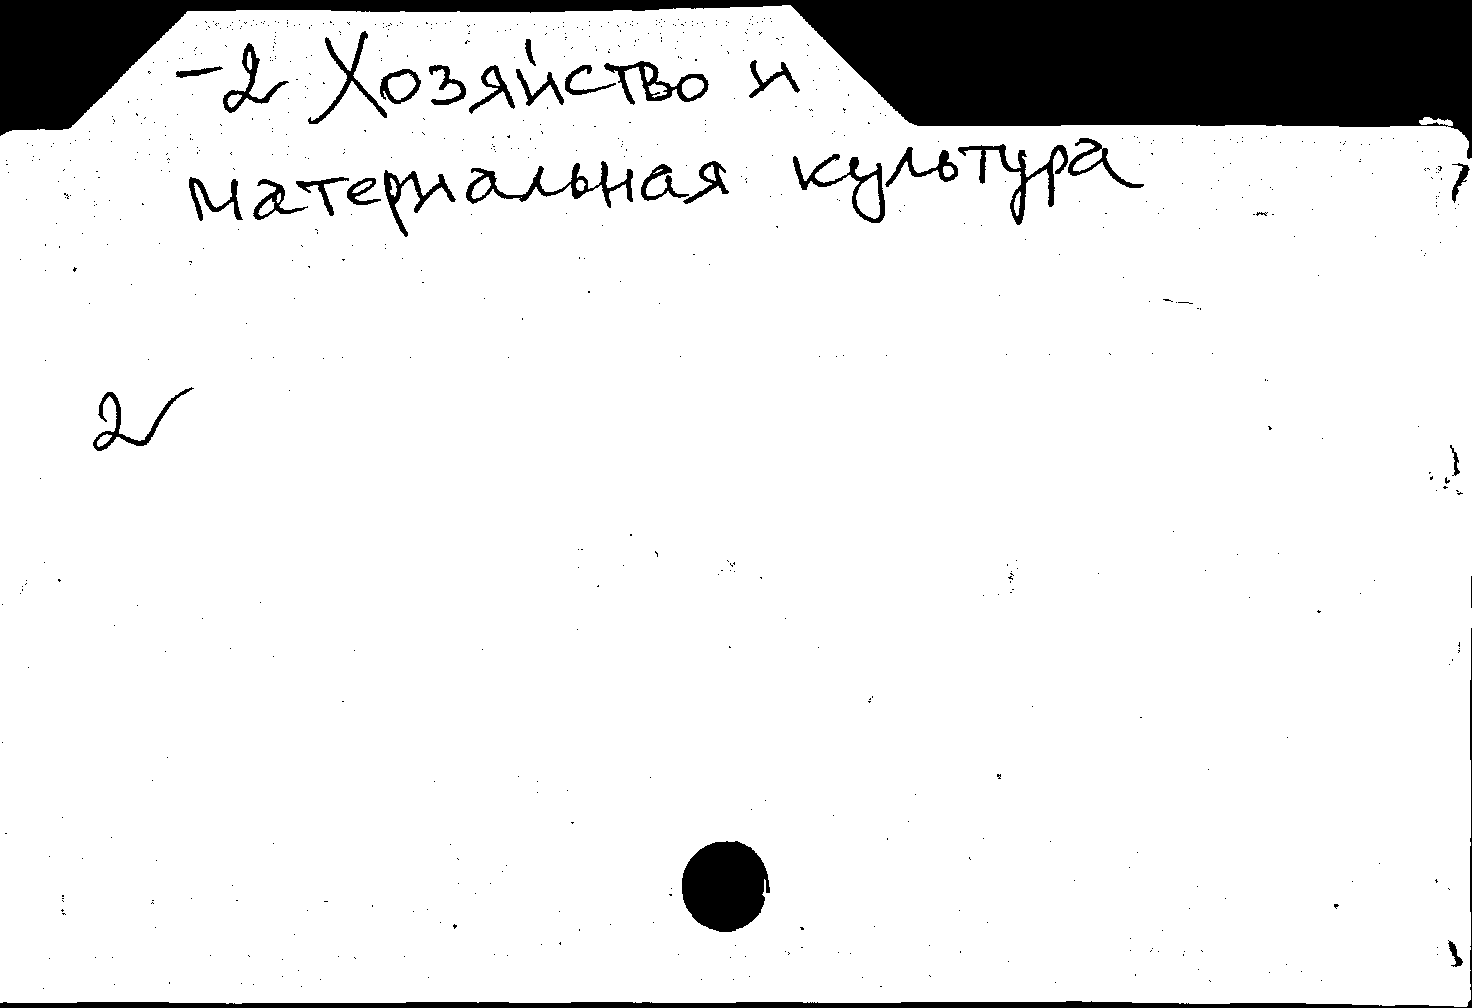 -2 Хозяйство и
материальная культура
2